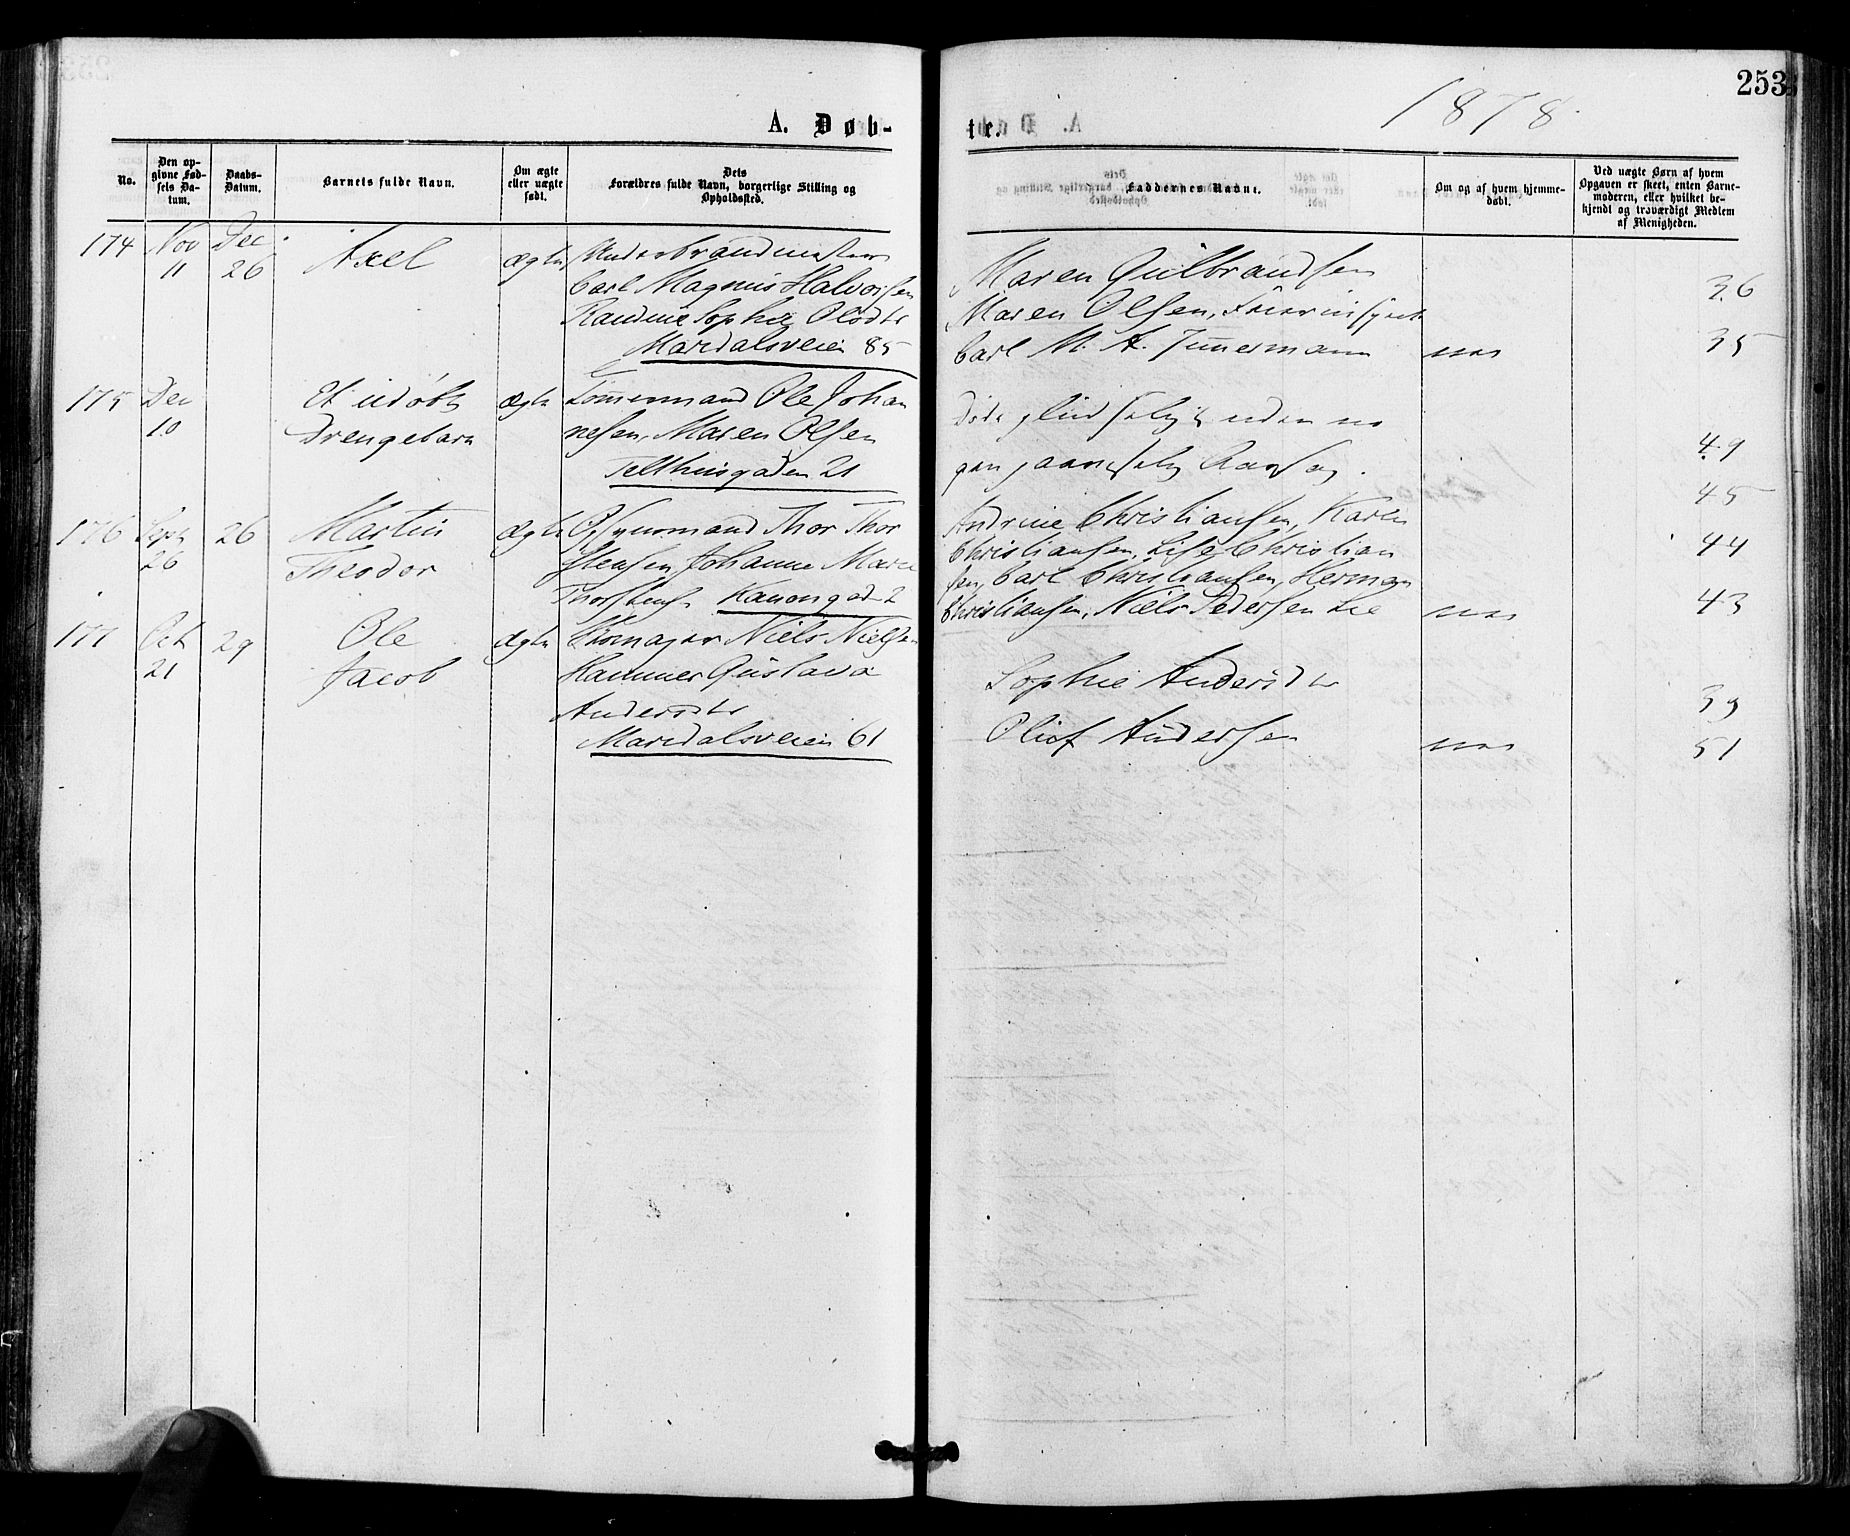 253
1878.
A. Døb-
te.
No.
Den op-
givne Fød-
sels Da-
tum.
Daabs-
Datum.
Barnets fulde Navn.
Om ægte
eller uægte
født.
Dets
Forældres fulde Navn, borgerlige Stilling og
Opholdssted.
Faddernes Navne.
Om og af hvem hjemme-
døbt.
Ved uægte Børn af hvem
Opgaven er skeet, enten Barne-
moderen, eller hvilket be-
kjendt og troværdigt Medlem
af Menigheden.
174 Nov Dec. Axel ægte Underbrandmester
11 26 Carl Magnus Halvorsen
Sophie Olsdtr
Maridalsveien 85
Maren Gulbrandsen
Maren Olsen,
Carl M. A. Timmermann
36
35
175 Dec Et udøbt ægte Tømmermand Ole Johan
10 Drengebarn nesen, Maren Olsen
Telthusgaden 21
Døde uden no
gen Aarsag.
49
45
176 Sept 26 Martin ægte Thor Thor
26 Theodor stensen Johanne Marie
Thorstens Kanongad 2
Andrine Christiansen, Karen
Christiansen, Lise Christian
sen, Carl Christiansen, Herman
Christiansen, Niels Pedersen Lie
44
43
177 Oct 29 Ole ægte Skomager Niels Nielsen
21 Jacob Hammer Gustava
Andersdtr
Maridalsveien 61
Sophie Andersdtr
Oluf Andersen
39
51